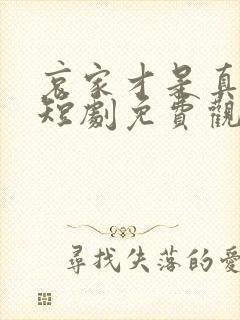 哀家才是真
短劇免費觀
尋找失落的愛